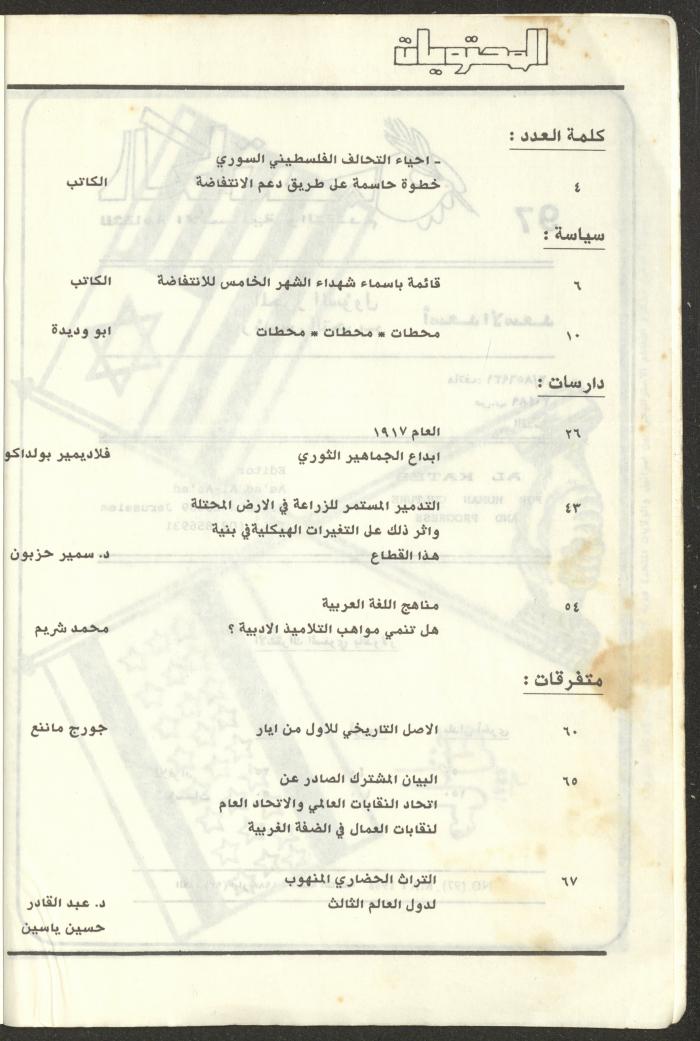 المحتويات
كلمة العدد :
- احياء التحالف الفلسطيني السوري
٤ خطوة حاسمة عل طريق دعم الانتفاضة الكاتب
سياسة :
٦ قائمة باسماء شهداء الشهر الخامس للانتفاضة الكاتب
١٠ محطات * محطات * محطات ابو وديدة
دارسات :
٢٦ العام ١٩١٧
ابداع الجماهير الثوري فلاديمير بولداكو
٤٣ التدمير المستمر للزراعة في الارض المحتلة
واثر ذلك عل التغيرات الهيكليةفي بنية
هذا القطاع د. سمير حزبون
٥٤ مناهج اللغة العربية
هل تنمي مواهب التلاميذ الادبية ؟ محمد شريم
متفرقات :
٦٠ الاصل التاريخي للاول من ايار جورج ماننع
٦٥ البيان المشترك الصادر عن
اتحاد النقابات العالمي والاتحاد العام
لنقابات العمال في الضفة الغربية
٦٧ التراث الحضاري المنهوب
لدول العالم الثالث د. عبد القادر
حسين ياسين